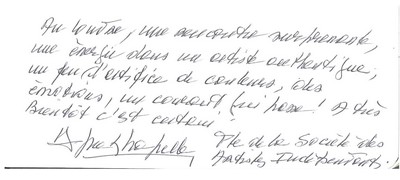 Au Centre, une rencontre surprenante,
une énergie dans un artiste authentique,
un feu d'artifice de couleurs, des
émotions, un courant qui passe ! A très
Bientôt c'est certain !
Pte de la Société des
Artistes Indépendants.